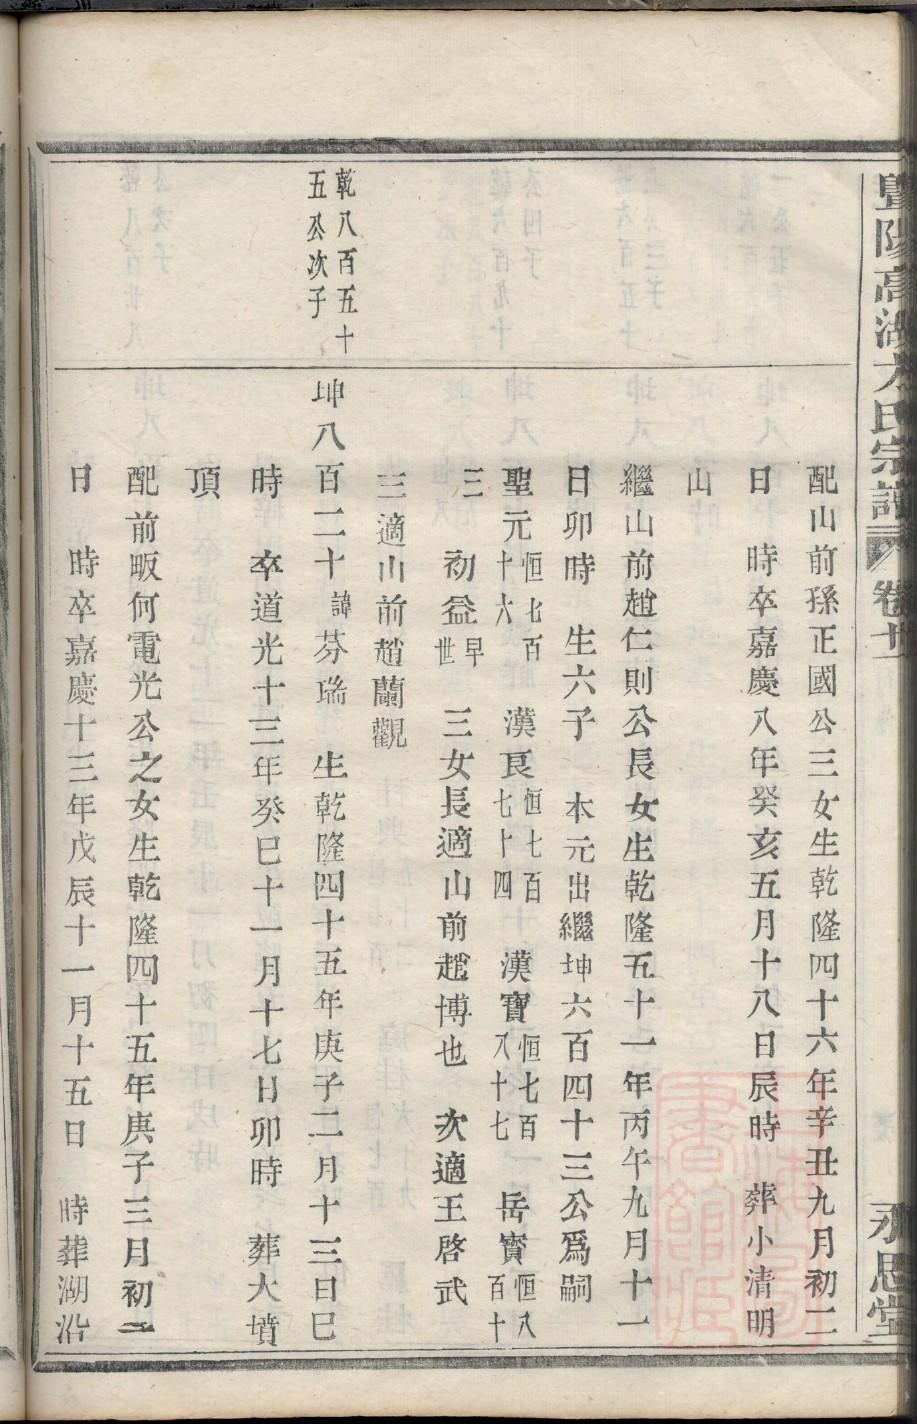 暨陽高湖方氏宗譜 卷十一 永思堂
配山前孫正國公三女生乾隆四十六年辛丑九月初二
日 時卒嘉慶八年癸亥五月十八日辰時 葬小清明
山
繼山前趙仁則公長女生乾隆五十一年丙午九月十一
日卯時 生六子 本元出繼坤六百四十三公爲嗣
聖元恒七百十六 漢良恒七百七十四 漢寶恒七百八十七 岳寶恒八百十
三 初益早世 三女長適山前趙博也 次適王啓武
三適山前趙蘭觀
乾八百五十
五公次子
坤八百二十諱芬瑞 生乾隆四十五年庚子二月十三日巳
時 卒道光十三年癸巳十一月十七日卯時 葬大墳
頂
配前畈何電光公之女生乾隆四十五年庚子三月初二
日 時卒嘉慶十三年戊辰十一月十五日 時葬湖沿